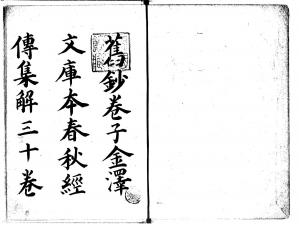 舊鈔卷子金澤
文庫本春秋經
傳集解三十卷